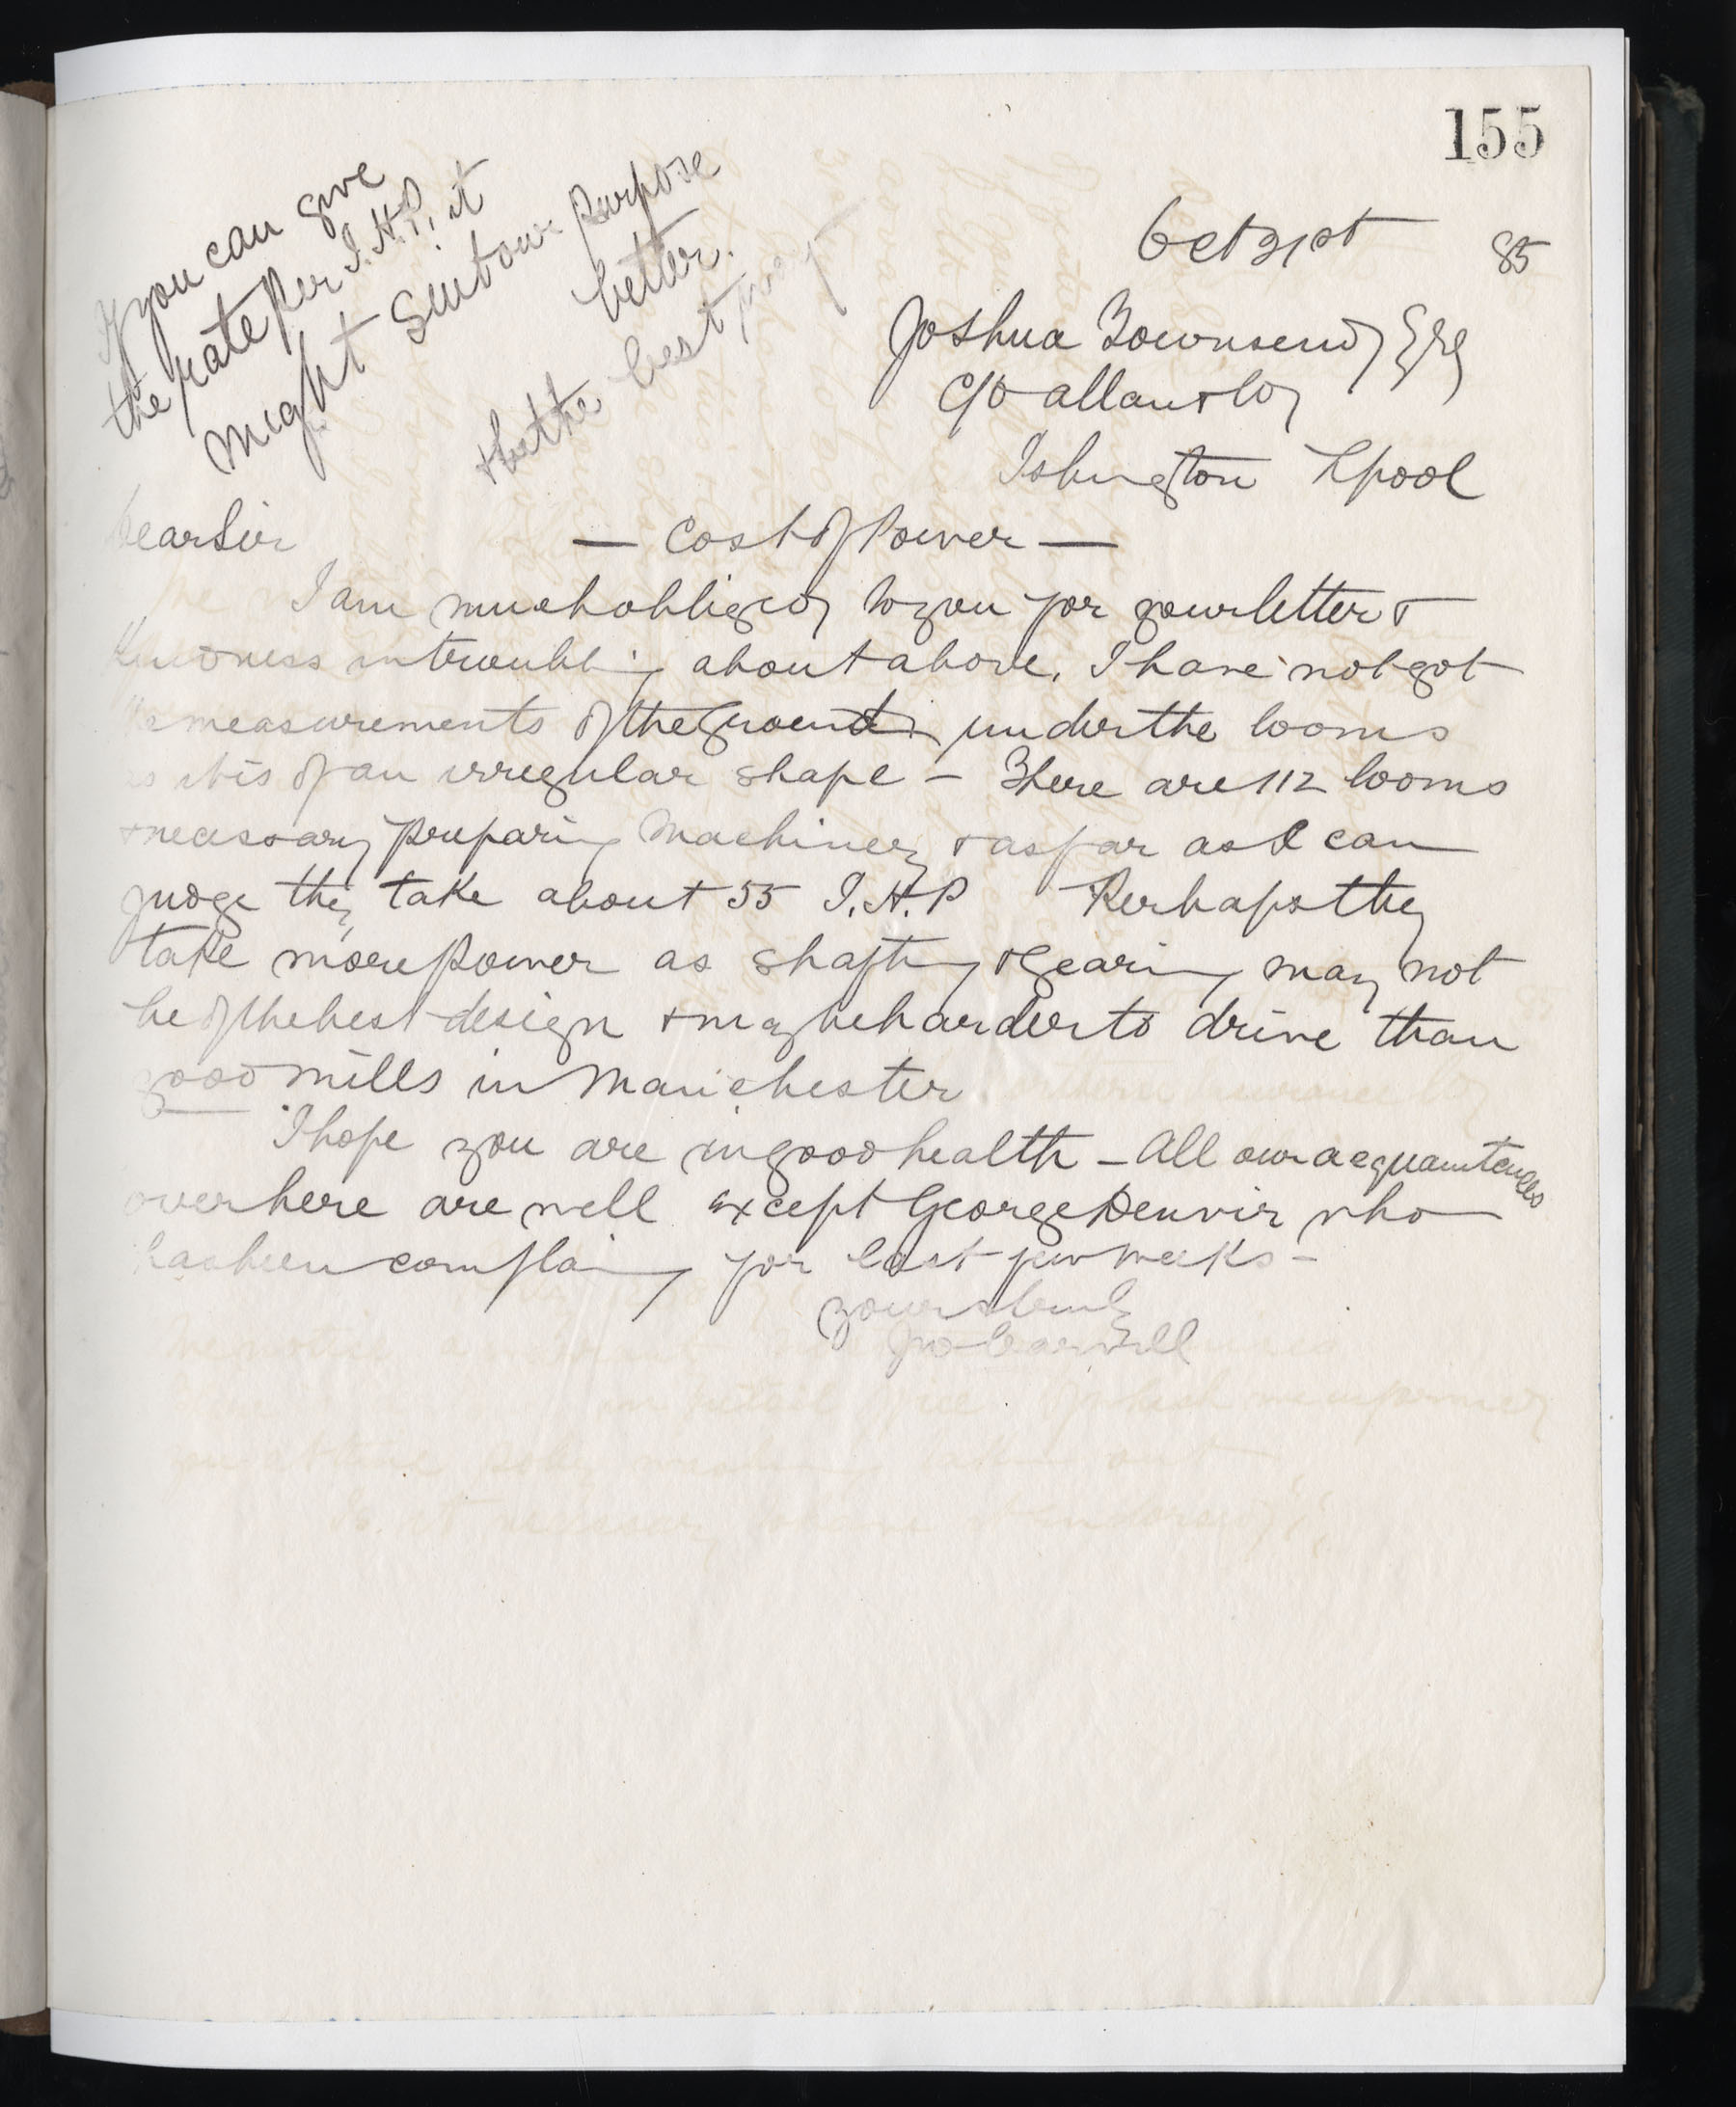 155
Oct 21st 85
If you can give
the rate per I.H.P. it
might suit our purpose
better.
& be the best
Joshua Townsend Esq
c/o Allan & Co
Islington Lpool
Dear Sir
— Cost of Power —
I am much obliged to you for your letter &
kindness in troubling about above. I have not got
the measurements of the ground under the looms
as it is of an irregular shape – There are 112 looms
& necessary preparing machinery & as far as I can
judge they take about 55 I.H.P Perhaps they
take more power as shafting & gearing may not
be of the best design & may be harder to drive than
good mills in Manchester.
I hope you are in good health – All our acquaintances
over here are well except George Denvir who
has been complaining for last few weeks –
Yours truly
Jno